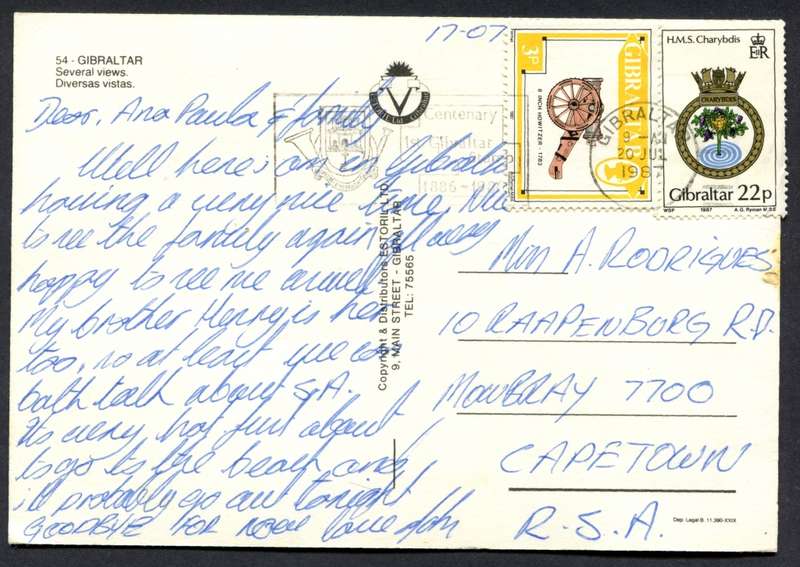 54 - GIBRALTAR
Several views.
Diversas vistas.
17-07
Dear, Ana Paula & family
Well here I am in Gibraltar
having a very nice time. Nice
to see the family again all very
happy to see me
My brother Henry is here
too, so at least we can
both talk about S.A.
Its very hot just about
to go to the beach and
i'll probably go out tonight
GOODBYE FOR now love
Copyright & Distributors ESTORIL LTD.
9, MAIN STREET - GIBRALTAR
TEL: 75565
V
Centenary
1st Gibraltar
1886 -
GIBRALTAR
9 - AM
20 JUL
1987
3p
GIBRALTAR
8 INCH HOWITZER - 1783
H.M.S. Charybdis
E II R
CHARYBDIS
Gibraltar 22p
WSF 1987 A.G. Ryman
A. RODRIGUES
10 RAAPENBURG RD.
MOWBRAY 7700
CAPETOWN
R.S.A.
Dep. Legal B. 11.390-XXIX